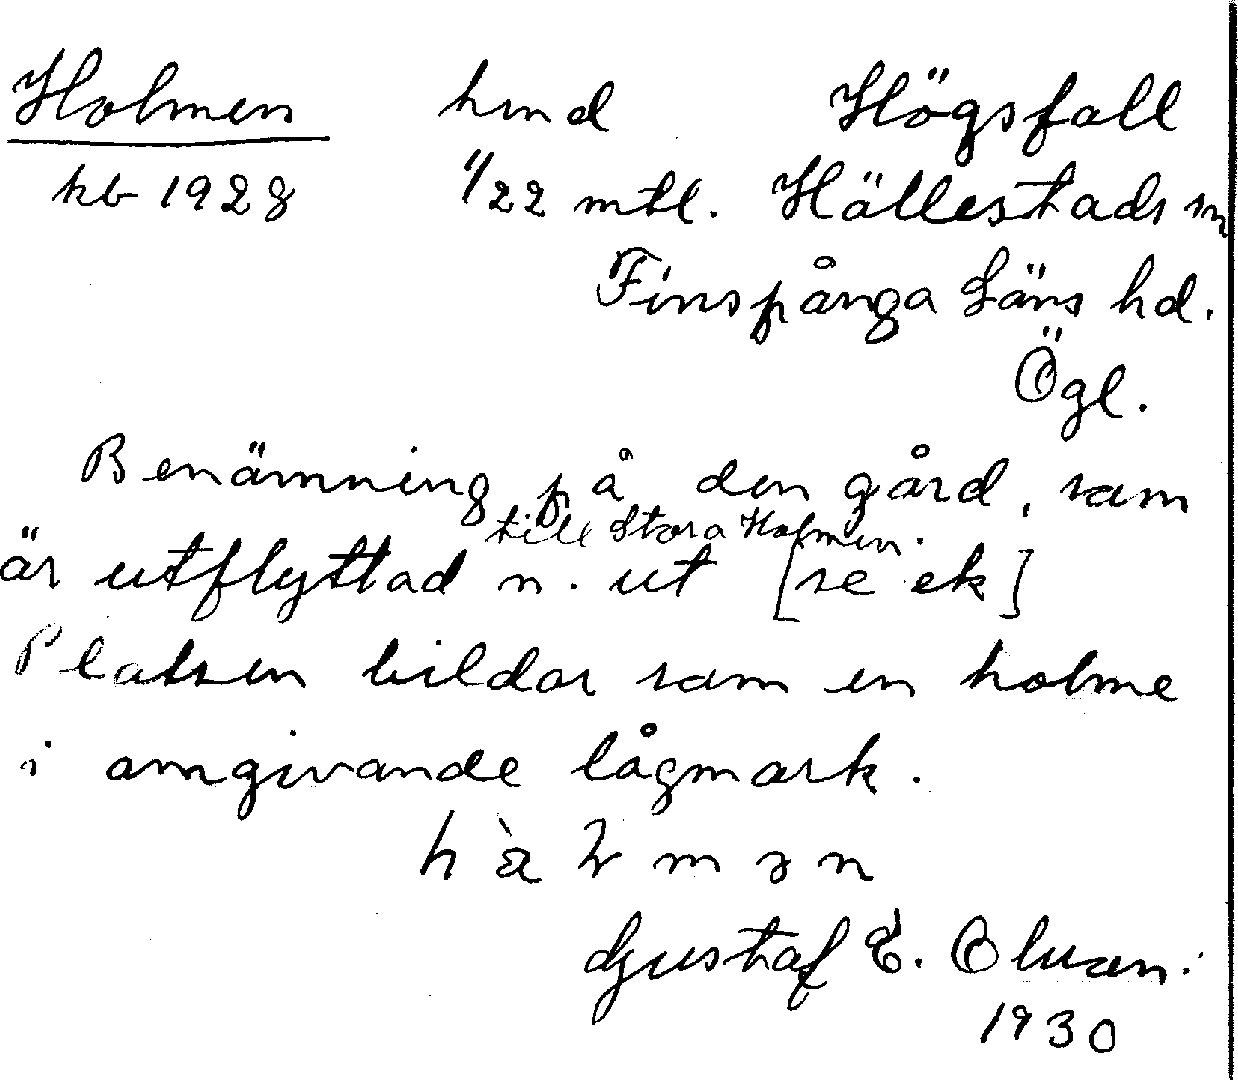 Holmen hmd Högsfall
kb 1928 1/22 mtl. Hällestads sn
Finspånga Läns hd.
Ögl.
Benämning på den gård, som
till Stora Holmen.
är utflyttad n. ut [se ek]
Platsen bildar som en holme
i omgivande lågmark.
Gustaf E. Olsson.
1930